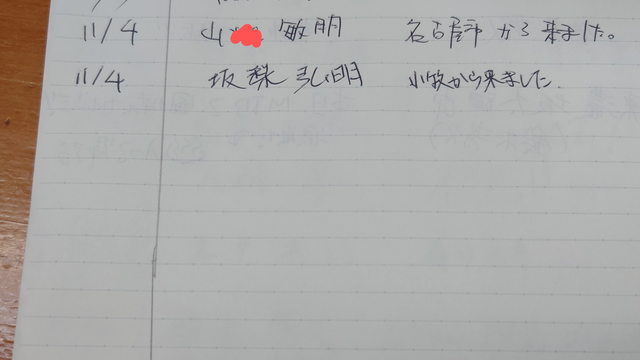 11/4 山 敏明 名古屋市から来ました。
11/4 坂梨弘明 小牧から来ました